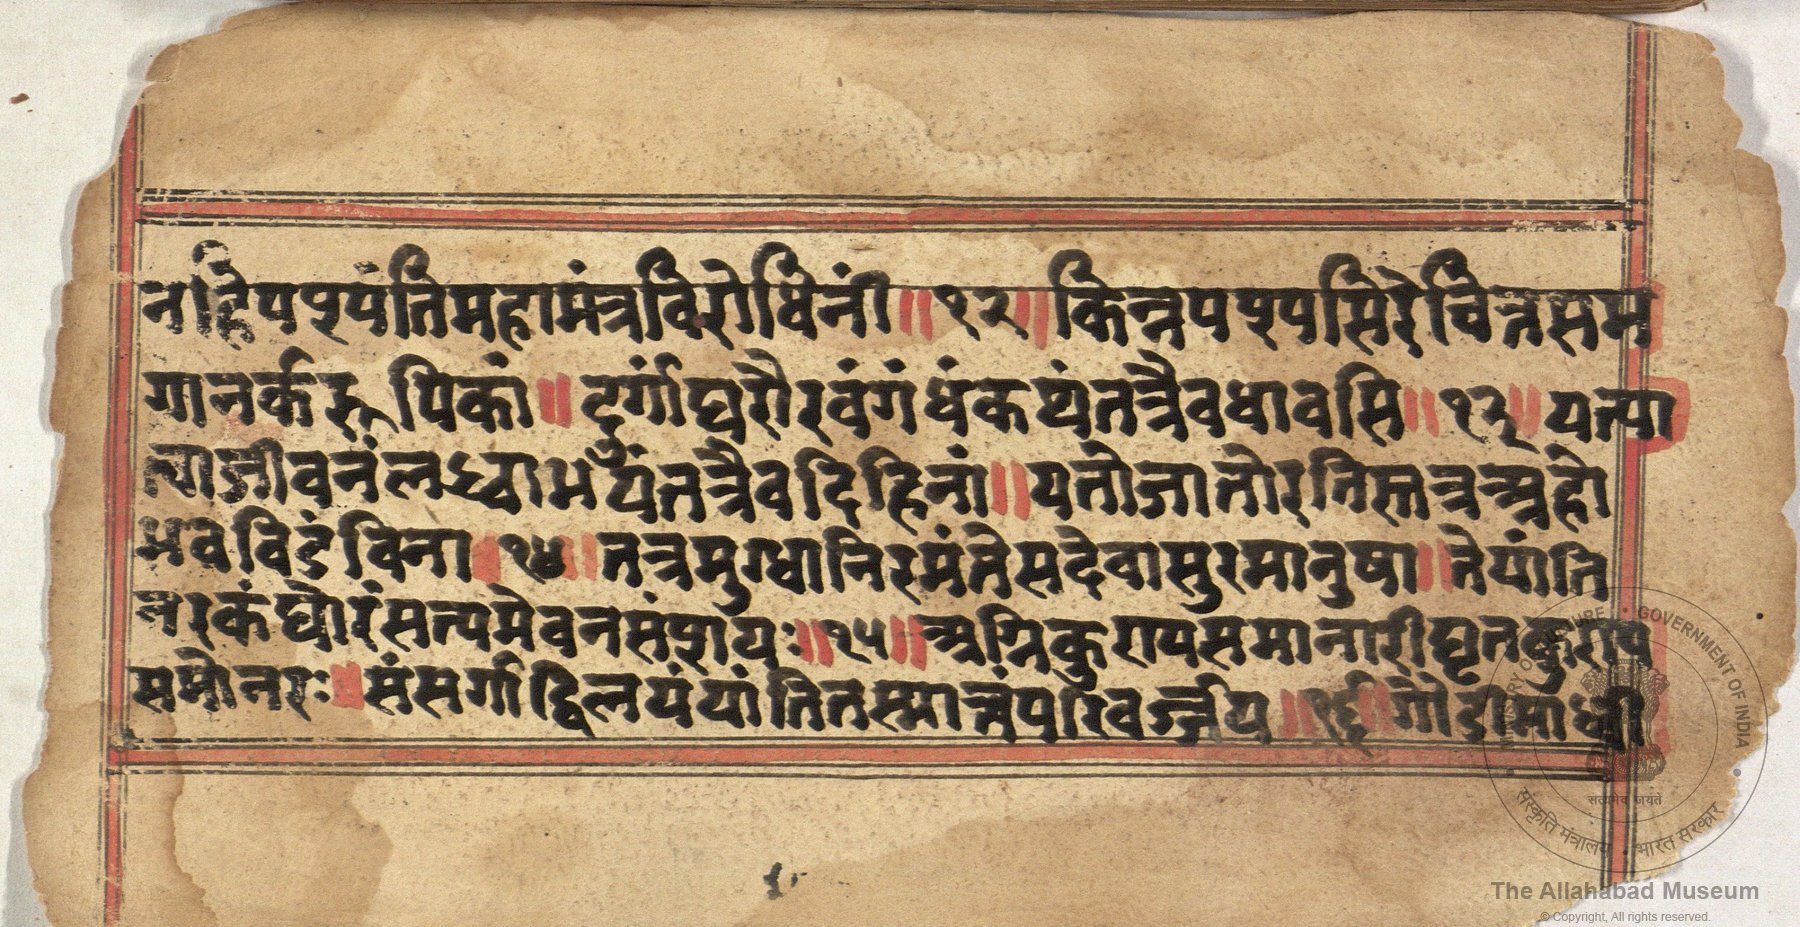 नहिपश्यंतिमहामंत्रविरोधिनीं॥१२॥किन्नपश्यसिरेचिन्नसम
गानर्करूपिकां॥दुर्गंधिघोरौरवंगंधंकथ्यंतत्रैवधावसि॥१३॥यत्पा
जीवनंलब्ध्वाभयंतत्रैवदिहिनां॥यतोजातोरतिस्तत्रअहो
भवविडंविना॥१४॥तत्रमुग्धानिरमंतेसदेवासुरमानुषा॥तेयांति
नरकंघोरंसत्यमेवनसंशयः॥१५॥अग्निकुरायसमानारीघृतकुराय
समोनरः॥संसर्गाद्विलयंयांतितस्मात्तंपरिवर्ज्जय॥१६॥गौडीमाध्वी
The Allahabad Museum
© Copyright, All rights reserved.
MINISTRY OF CULTURE • GOVERNMENT OF INDIA
सत्यमेव जयते
संस्कृति मंत्रालय • भारत सरकार